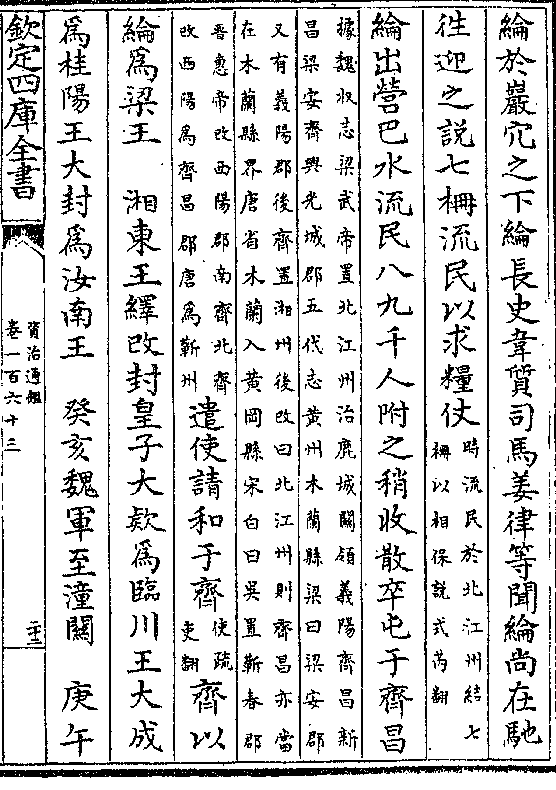 綸於巖穴之下綸長史韋質司馬姜律等聞綸尚在馳
徃迎之說七柵流民以求糧仗時流民於北江州結七
柵以相保說式芮翻
綸出營巴水流民八九千人附之稍收散卒屯于齊昌
據魏收志梁武帝置北江州治鹿城關領義陽齊昌新
昌梁安齊興光城郡五代志黄州木蘭縣梁曰梁安郡
又有義陽郡後齊置湘州後改曰北江州則齊昌亦當
在木蘭縣界唐省木蘭入黄岡縣宋白曰吳置蘄春郡
晉惠帝改西陽郡南齊北齊
改西陽爲齊昌郡唐爲蘄州遣使請和于齊使疏
吏翻齊以
綸爲梁王　湘東王繹改封皇子大款爲臨川王大成
爲桂陽王大封爲汝南王　癸亥魏軍至潼關　庚午
欽定四庫全書
資治通鑑
卷一百六十三
二十二